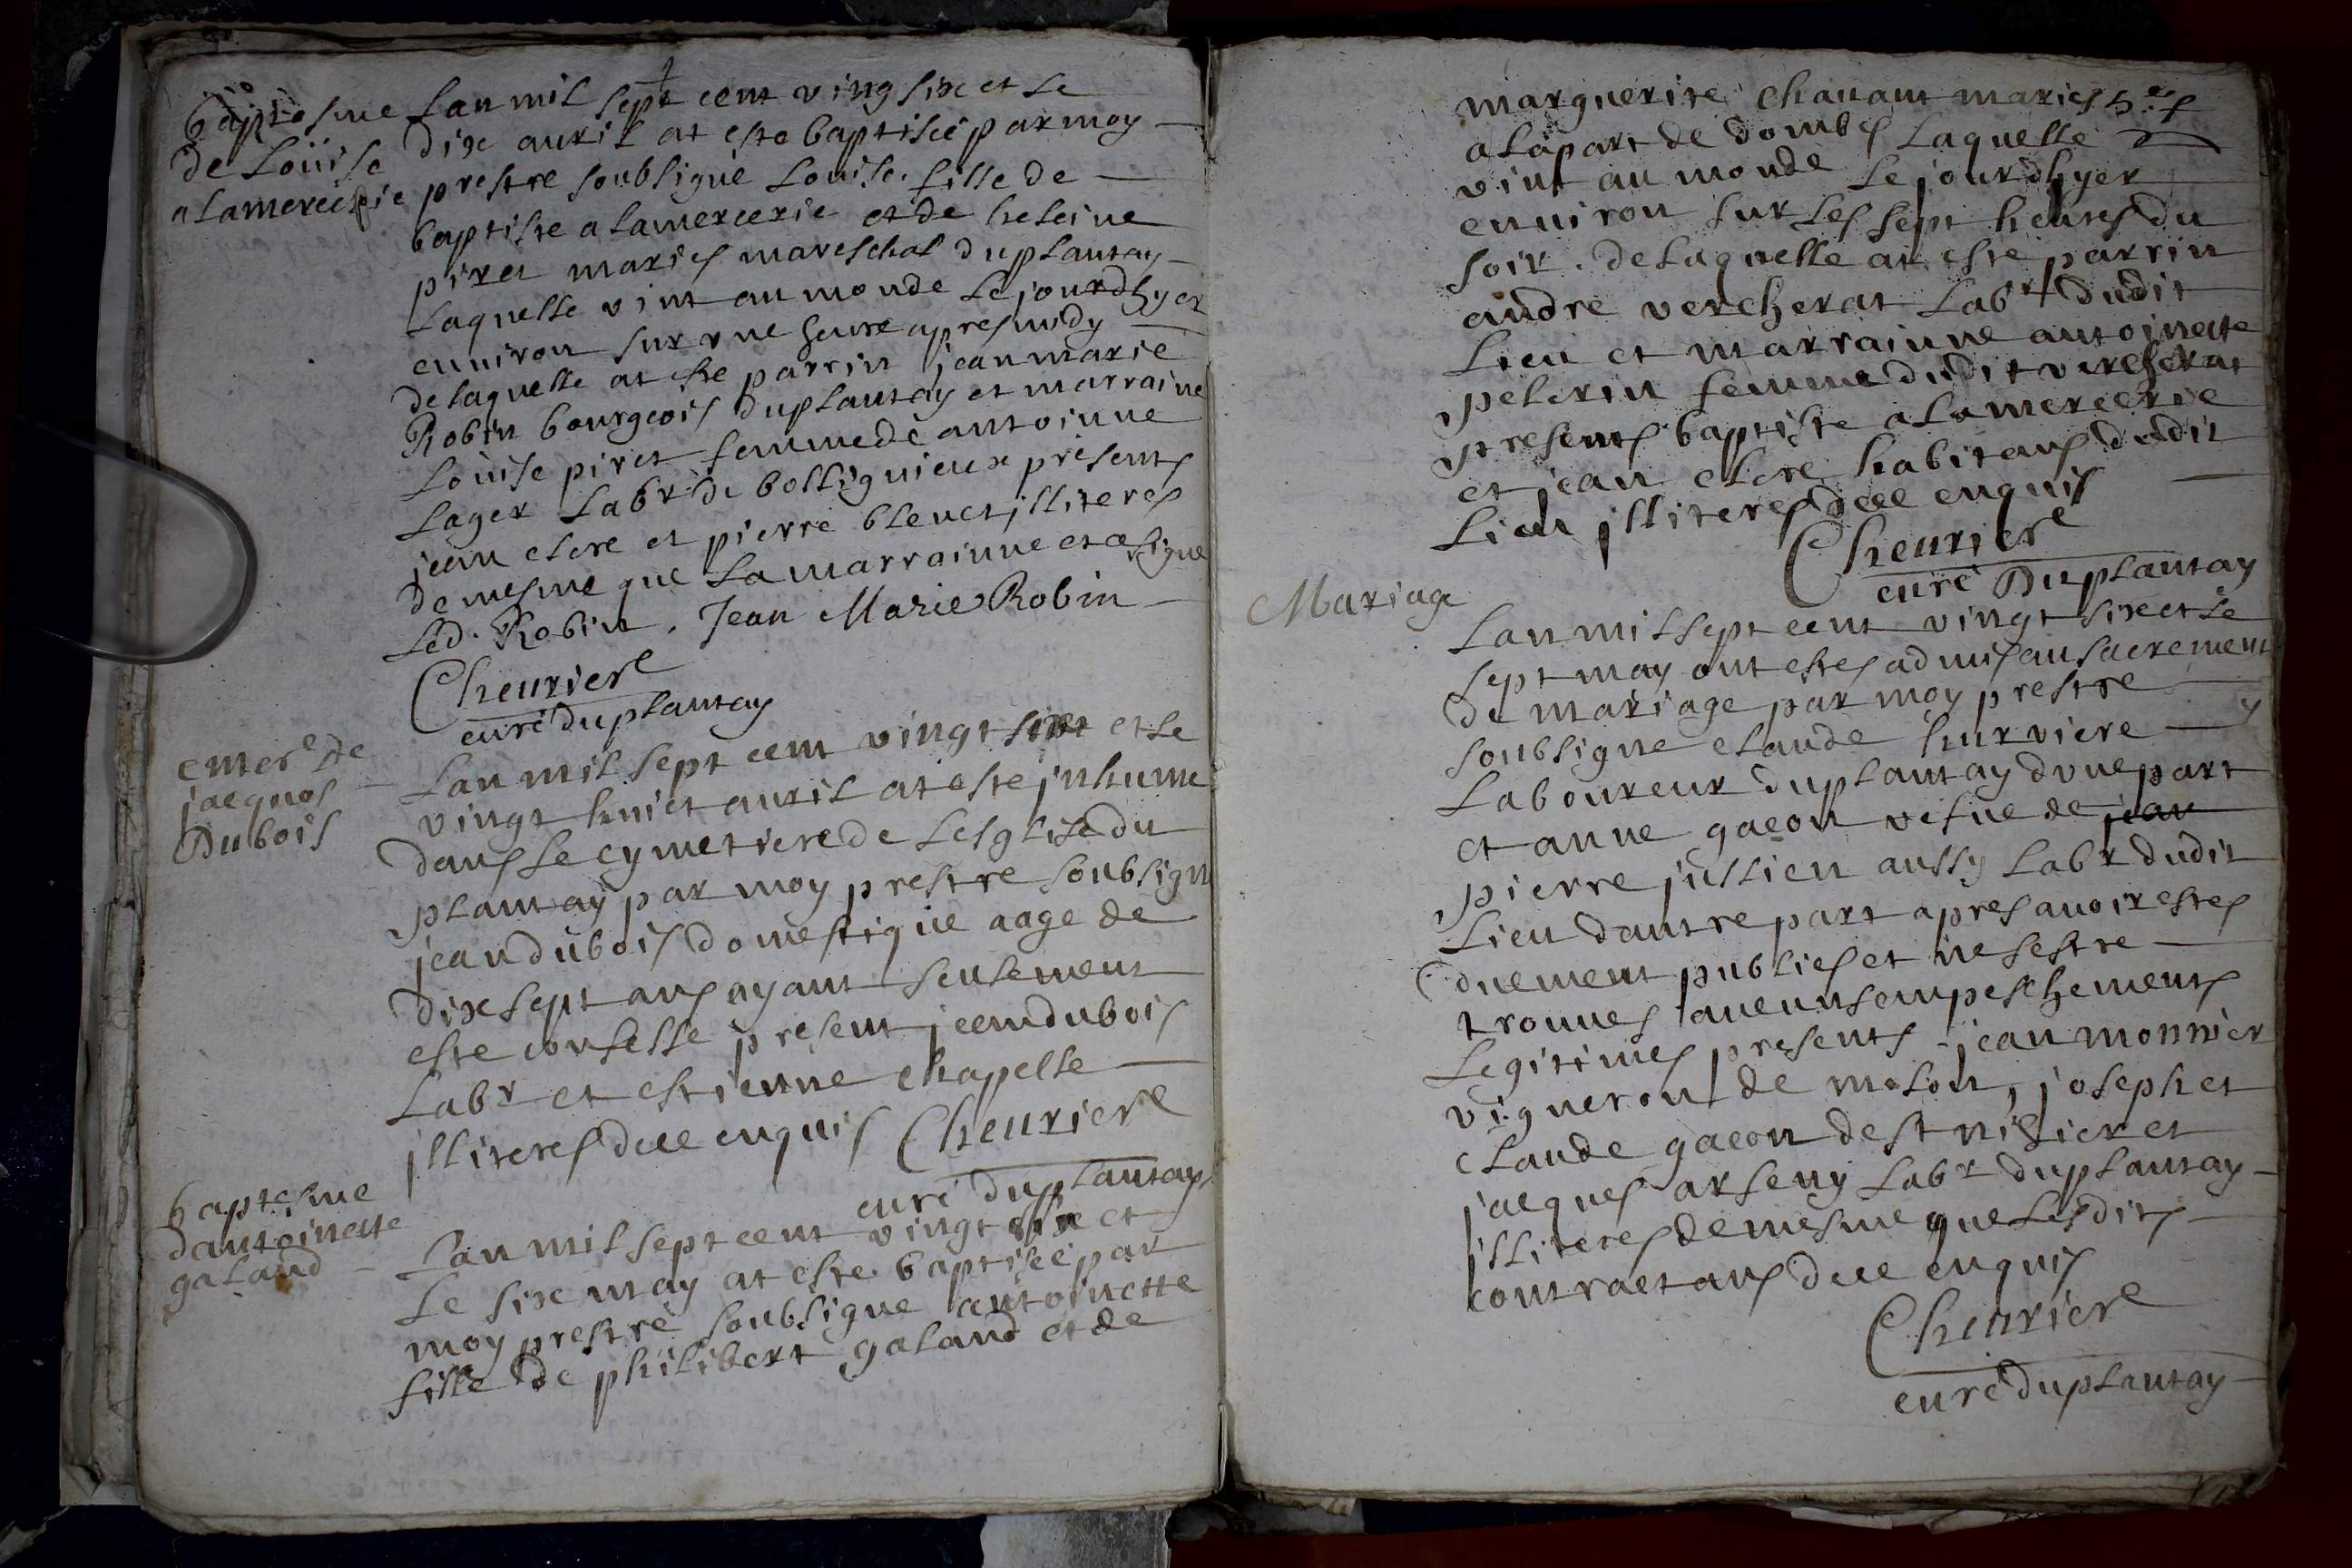 baptesme
de Loüise
a Lamercerie
Lan mil sept cent ving six et Le
dix auril at este baptisée par moy
prestre soubsigné Louise fille de
baptiste a Lamercerie et de heleine
piret mariés mareschal du plantay
Laquelle vint au monde Le jourdhyer
enuiron sur vne heure apres midy
de laquelle at este parrin jean marie
Robin bourgeois du plantay et marraine
Loüise piret femme de antoinne
Lager Labr de bollignieux présents
jean clere et pierre bleuet jlliteres
de mesme que La marrainne et a signe
Led. Robin. Jean Marie Robin
Cheuriere
curé du plantay
enterr de
jacques
Dubois
Lan mil sept cent vingt six et Le
vingt huict auril at este jnhume
dans Le cymetiere de Lesglise du
plantay par moy prestre soubsign
jean dubois domestique aage de
dix sept ans ayant seulement
este confesse présent jean dubois
Labr et estienne chapelle
jlliteres dece enquis Cheuriere
curé du plantay
baptesme
dantoinette
galand
Lan mil sept cent vingt six et
Le six may at este baptisée par
moy prestre soubsigne antoinette
fille de philibert galand et de
marguerite chanant mariés
a Lapart de dombes Laquelle
vint au monde Le jourdhyer
enuiron sur Les sept heures du
soir. de Laquelle at este parrin
andre vercherat Labr dudit
Lieu et marrainne antoinette
pelerin femme dudit vercherat
presents baptiste a Lamercerie
et jean clere habitans dudit
Lieu jlliteres dece enquis
Cheuriere
curé Du plantay
Mariage
Lan mil sept cent vingt six et Le
sept may ont estes admis au sacrement
de mariage par moy prestre
soubsigne claude huruiere
Laboureur du plantay dvne part
et anne gacon vefue de jean
pierre jullien aussy Labr dudit
Lieu dautre part apres auoir estes
duement publies et ne sestre
trouues aucuns empeschements
Legitimes presents jean monnier
vigneron de molon, joseph et
claude gacon de st nisier et
jacques arseny Labr du plantay
jlliteres de mesme que Lesdits
contractans dece enquis
Cheuriere
curé du plantay